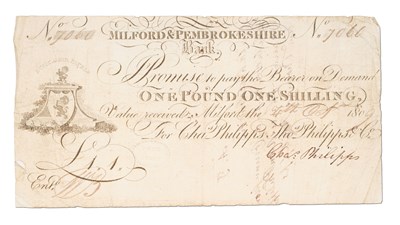 No. 7060 MILFORD & PEMBROKESHIRE No. 7060
Bank,
Promise to pay the Bearer on Demand
ONE POUND ONE SHILLING,
Value received Milford the
For Chas. Philipps, Thos. Philipps & Co
£1.1.
Chas. Philipps
Entd.